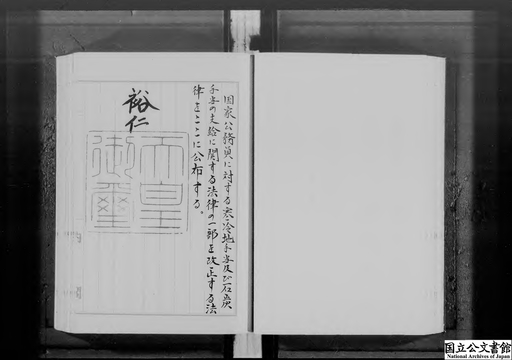 国家公務員に対する寒冷地手当及び石炭
手当の支給に関する法律の一部を改正する法
律をここに公布する。
裕仁
天皇
御璽
国立公文書館
National Archives of Japan